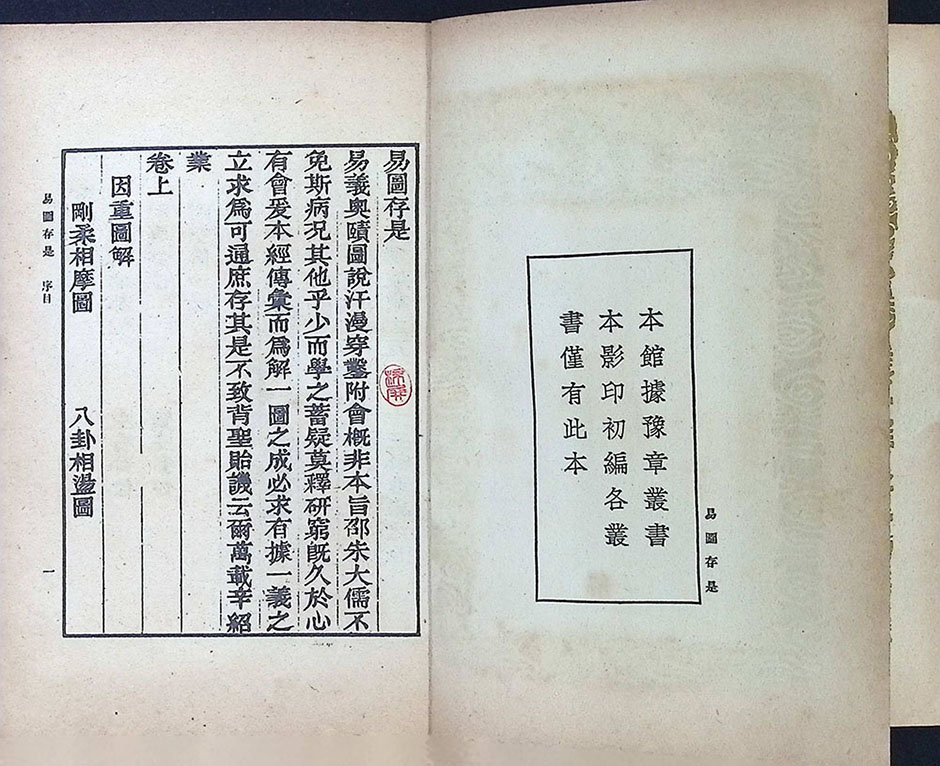 本館據豫章叢書
本影印初編各叢
書僅有此本
易圖存是
易圖存是
易義奧賾圖說汗漫穿鑿附會概非本旨邵朱大儒不
免斯病况其他乎少而學之蓄疑莫釋研窮旣久於心
有會爰本經傳彙而爲解一圖之成必求有據一義之
立求爲可通庶存其是不致背聖貽譏云爾萬載辛紹
業
卷上
因重圖解
剛柔相摩圖 八卦相盪圖
易圖存是 序目 一